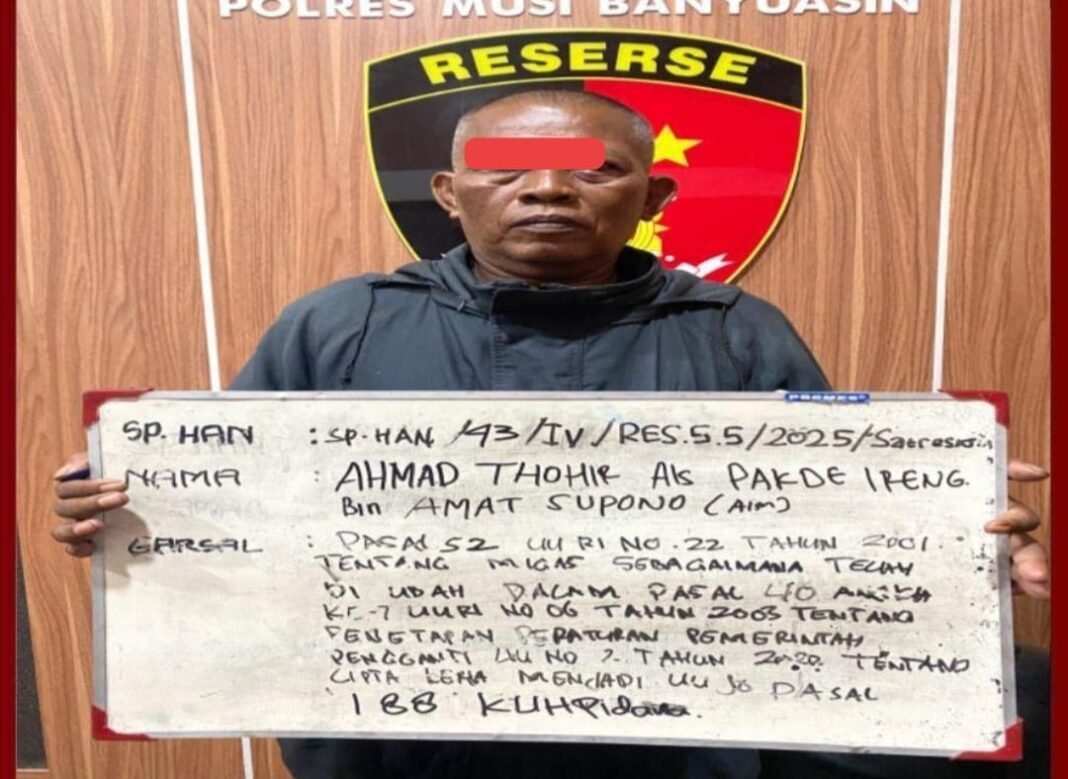 POLRES MUSI BANYUASIN
RESERSE
SP. HAN : SP. HAN /93/IV/RES.5.5/2025/Satreskrim
NAMA : AHMAD THOHIR Als PAKDE IRENG
Bin AMAT SUPONO (Alm)
GARSAL : PASAL 52 UU RI NO. 22 TAHUN 2001
TENTANG MIGAS SEBAGAIMANA TELAH
DI UBAH DALAM PASAL 40 ANGKA
KE-7 UURI NO 06 TAHUN 2003 TENTANG
PENETAPAN PERATURAN PEMERINTAH
PENGGANTI UU NO 2 TAHUN 2020 TENTANG
CIPTA MENJADI UU JO PASAL
188 KUHPidana.